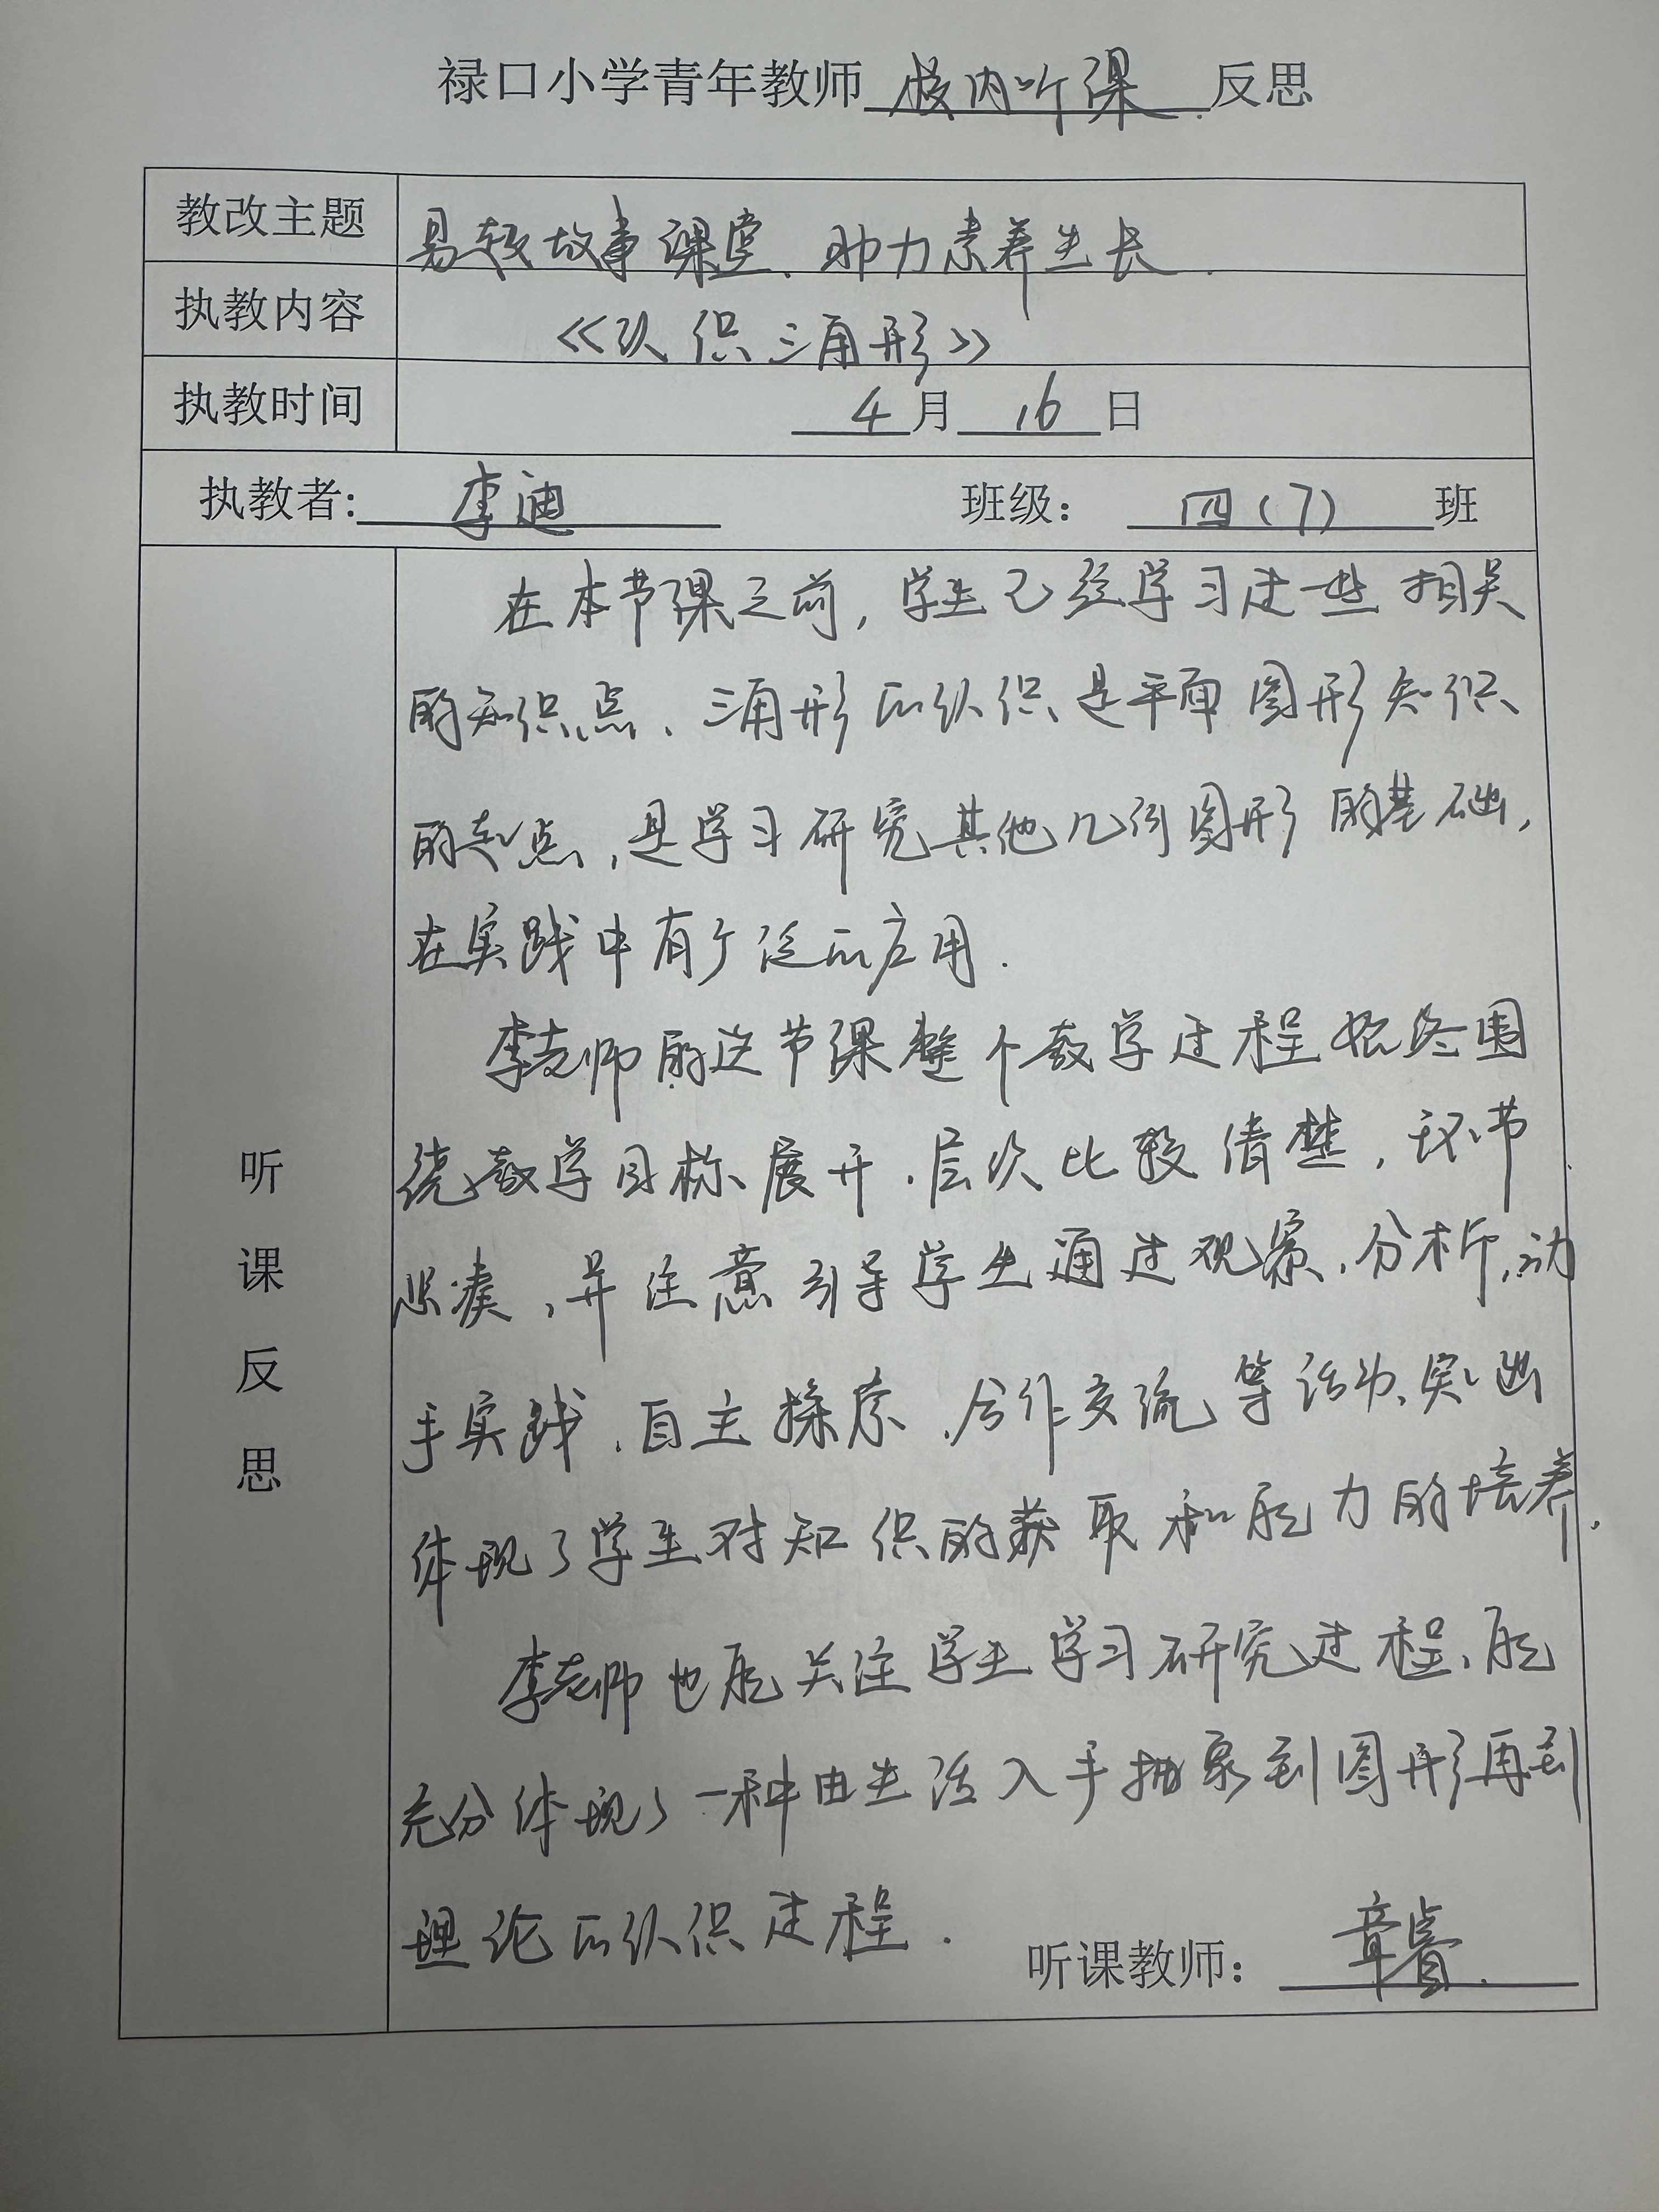 禄口小学青年教师校内听课反思
教改主题 易趣故事课堂、助力素养生长.
执教内容 《认识三角形》
执教时间 4月16日
执教者: 李迪 班级: 四(7)班
听课反思
在本节课之前,学生已经学习过一些相关
的知识点、三角形的认识是平面图形知识
的起点,是学习研究其他几何图形的基础,
在实践中有广泛的应用.
李老师的这节课整个教学过程始终围
绕教学目标展开.层次比较清楚,环节
紧凑,并注意引导学生通过观察、分析、动
手实践、自主探索、合作交流等活动、突出
体现了学生对知识的获取和能力的培养.
李老师也能关注学生学习研究过程、能
充分体现了一种由生活入手抽象到图形再到
理论的认识过程.
听课教师: 章睿.